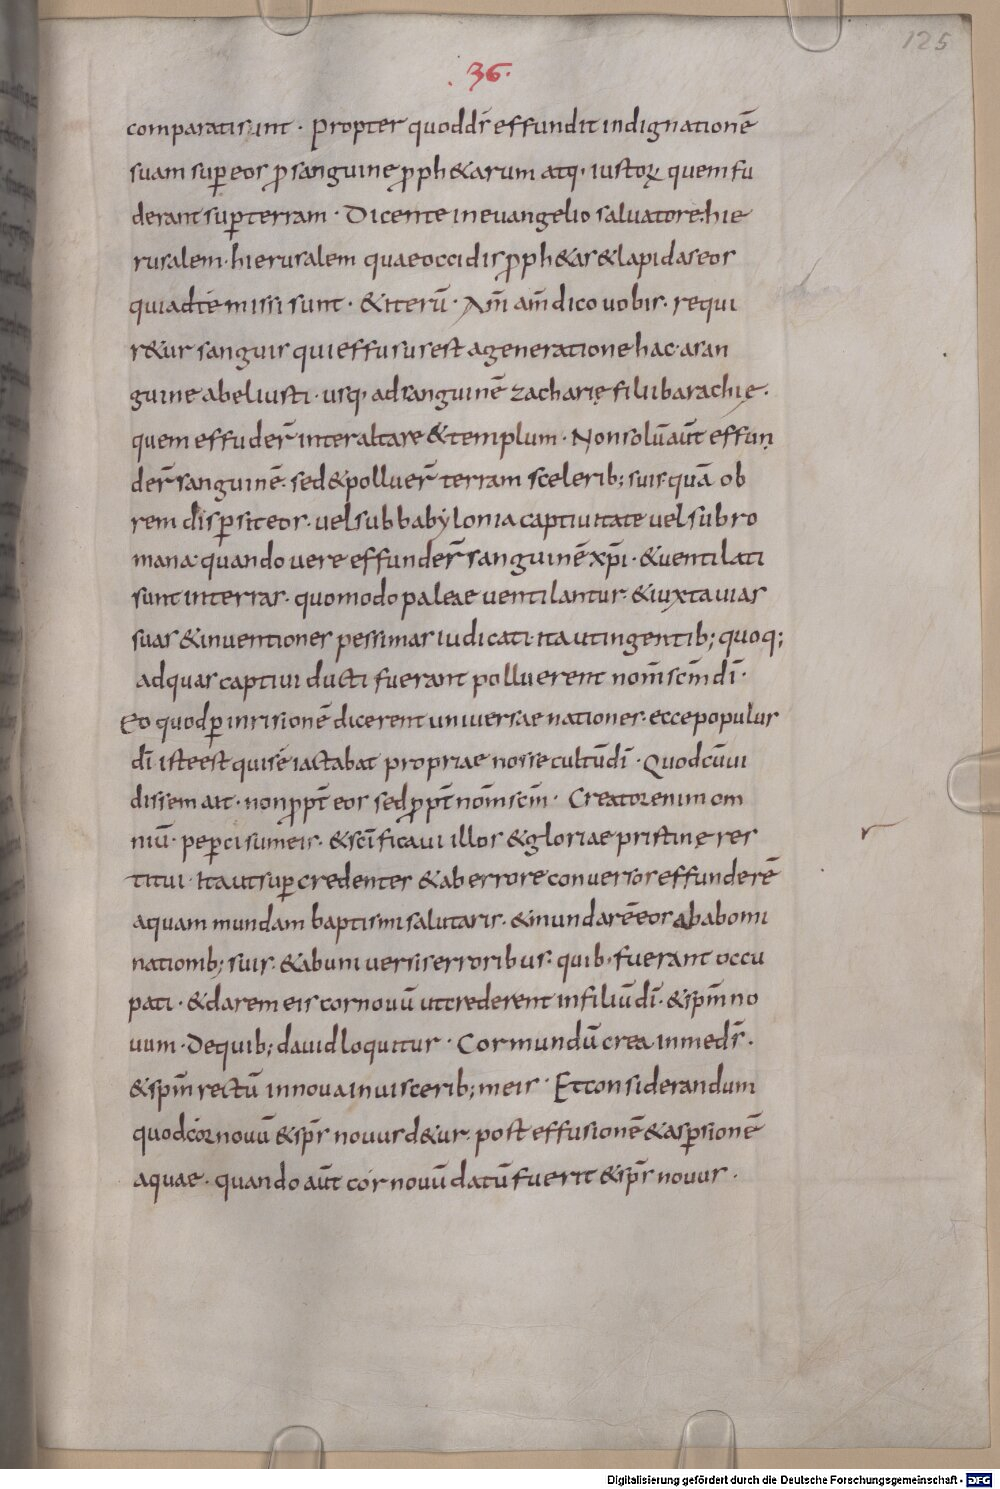 125
.36.
comparati sunt · Propter quod dn̄s effundit indignationē
suam sup̱ eos ꝓ sanguine ꝓph&arum atq; iustoꝝ quem fu
derant sup̱ terram · Dicente in evangelio salvatore. hie
rusalem. hierusalem quae occidis ꝓph&as & lapidas eos
qui ad te missi sunt · & iterū · Am̄ am̄ dico vobis. requi
r&ur sanguis qui effusus est a generatione hac. a san
guine abel iusti. usq; ad sanguinē zacharię filii barachię.
quem effuder̄ inter altare & templum · Non solū aūt effun
der̄ sanguinē. sed & polluer̄ terram sclerib; suis. quā ob
rem disp̱sit eos. vel sub babylonia captivitate vel sub ro
mana. quando vere effunder̄ sanguinē xp̄i · & ventilati
sunt in terras. quomodo paleae ventilantur. & iuxta vias
suas & inventiones pessimas iudicati. ita ut in gentib; quoq;
ad quas captivi ducti fuerant polluerent nom̄ sc̄m dī ·
Eo quod p̱ inrisionē dicerent universae nationes. ecce populus
dī iste est qui se iactabat propriae nosse cultū dī · Quod cū vi
dissem ait. non ꝓpt̄ eos sed ꝓpt̄ nom̄ sc̄m · Creator enim om
niū. pep̱ci sum eis. & sc̄ificavi illos & gloriae pristinę res
titui. ita ut sup̱ credentes & ab errore conversos effunderē
aquam mundam baptismi salutaris. & mundarē eos ab abomi
nationib; suis. & ab universis erroribus. quib; fuerant occu
pati · & darem eis cor novū ut crederent in filiū dī. & sp̄m no
vum · De quib; david loquitur · Cor mundū crea in me ds̄.
& sp̄m rectū innova in viscerib; meis · Et considerandum
quod cor novū & sp̄s novus d&ur. post effusionē & asp̱sionē
aquae. quando aūt cor novū datū fuerit & sp̄s novus.
r
Digitalisierung gefördert durch die Deutsche Forschungsgemeinschaft - DFG